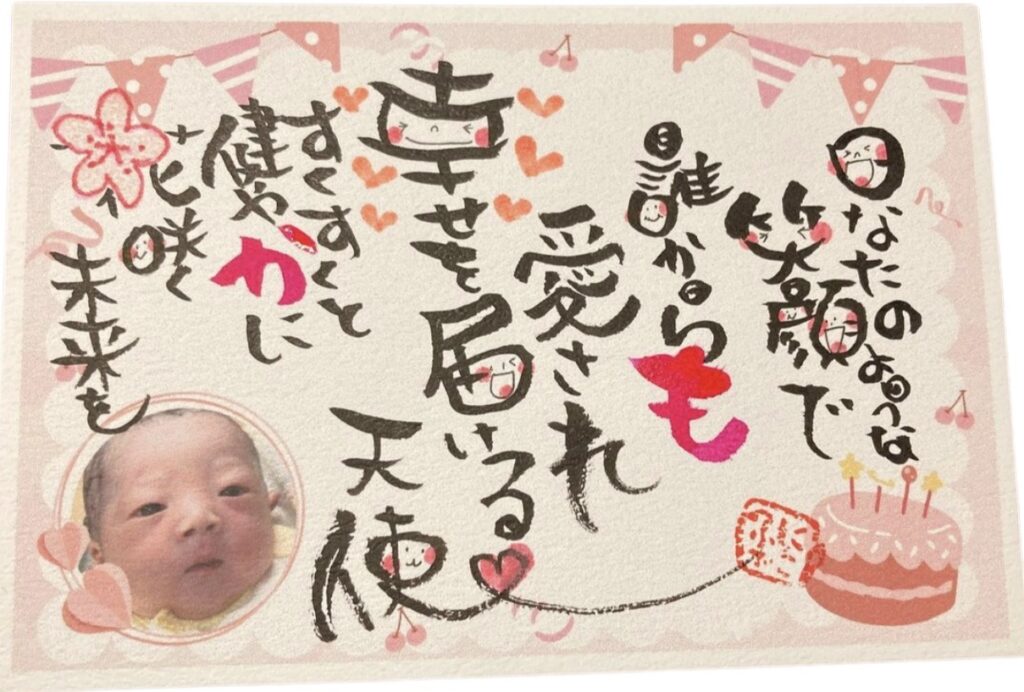 日なたのような
笑顔で
誰からも
愛され
幸せを届ける
天使
すくすくと
健やかに
花咲く
未来を